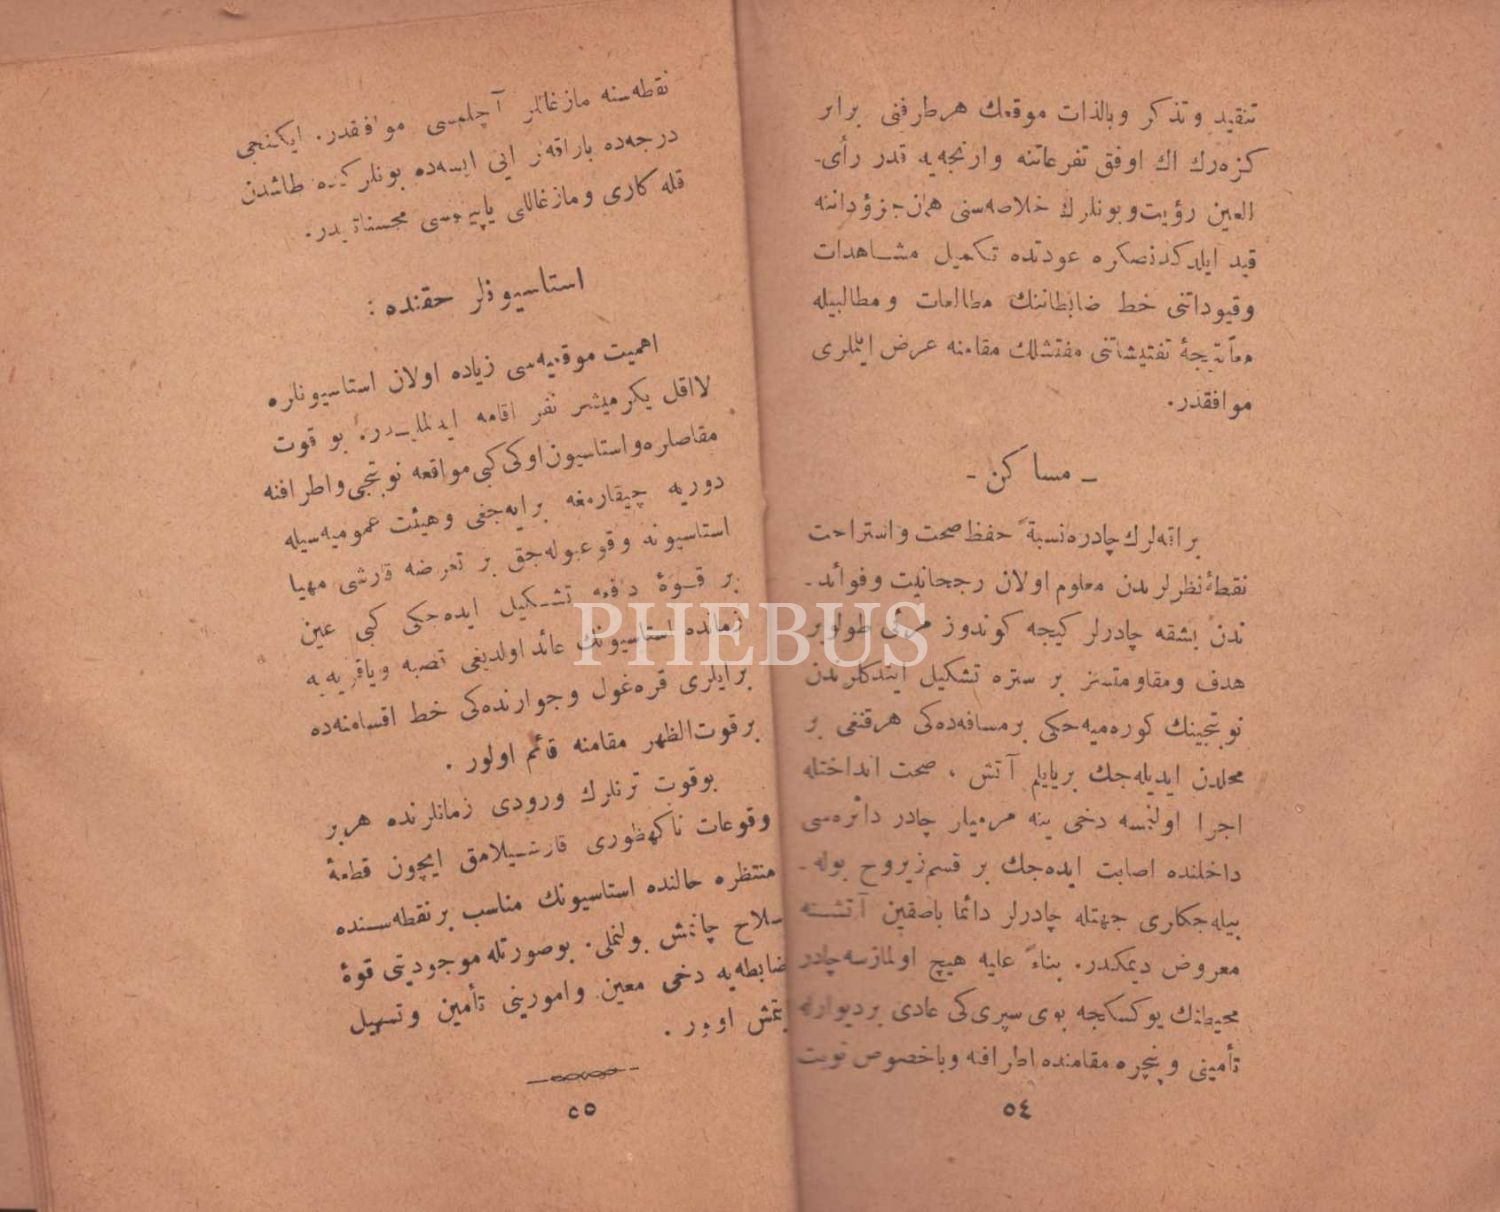 تنقيد وتذكر وبالذات موقعك هر طرفنى برابر
كزه‌رك اك اوفق تفرعاتنه وارنجه‌يه قدر رأى-
العين رؤيت وبونلرك خلاصه‌سنى همان جزؤداننه
قيد ايلدكدنصكره عودتده تكميل مشاهدات
وقيوداتنى خط ضابطاننك مطالعات ومطالبيله
تفتيشاتنى مفتشلك مقامنه عرض ايتملرى
موافقدر.
- مساكن -
براقه‌لرك چادره نسبةً حفظ صحت واستراحت
نقطهٔ نظرلرندن معلوم اولان رجحانيت وفوائد-
ندن بشقه چادرلر كيجه كوندوز مرئى طولو بر
هدف ومقاومتسز بر ستره تشكيل ايتدكلرندن
نوبتجينك كوره‌ميه‌جكى بر مسافه‌ده‌كى هرقنغى بر
محلدن ايديله‌جك بر يايلم آتش ، صحت انداختله
اجرا اولنمسه دخى ينه مرميلر چادر دائره‌سى
داخلنده اصابت ايده‌جك بر قسم زيروح بوله-
بيله‌جكلرى جهتله چادرلر دائما باصقين آتشنه
معروض ديمكدر. بناءً عليه هيچ اولمازسه چادر
محيطنك يوكسكجه بوى سپرى كى عادى بر ديوارله
تأمينى وپنچره مقامنده اطرافنه وباخصوص نوبت
٥٤
نقطه‌سنه مازغاللر آچلمسى موافقدر. ايكنجى
درجه‌ده باراقه‌لر ايى ايسه‌ده بونلركده طاشدن
قله كارى ومازغاللى ياپيلمسى محسناتيدر.
استاسيونلر حقنده :
اهميت موقعيه‌سى زياده اولان استاسيونلره
لااقل يكرميشر نفر اقامه ايدلمليدر. بو قوت
مقاصلره واستاسيون اوكى كبى مواقعه نوبتجى واطرافنه
دوريه چيقارمغه يرايه‌جغى وهيئت عموميه‌سيله
استاسيونه وقوعبوله‌جق بر تعرضه قارشى مهيا
بر قوهٔ دافعه تشكيل ايده‌جكى كبى عين
زمانده استاسيونك عائد اولديغى قصبه وياقريه‌يه
بر ايلرى قره‌غول وجوارنده‌كى خط اقسامنه‌ده
بر قوت الظهر مقامنه قائم اولور .
بو قوت ترنلرك ورودى زمانلرنده هر بر
وقوعات ناكهظهورى قارشيلامق ايچون قطعهٔ
منتظره حالنده استاسيونك مناسب بر نقطه‌سنده
سلاح چاتمش بولنملى. بوصورتله موجوديتى قوهٔ
ضابطه‌يه دخى معين وامورينى تأمين وتسهيل
ايتمش اولور .
٥٥
PHEBUS